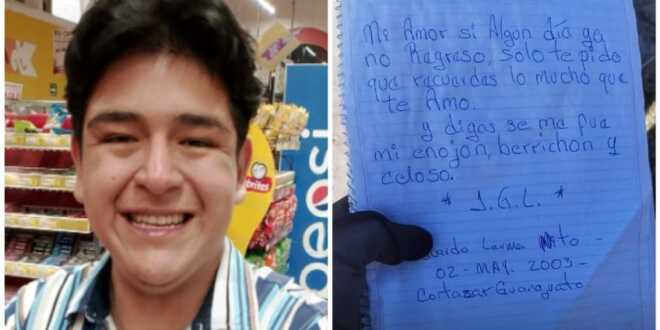 Me Amor si Algun día ya
no Regreso, solo te pido
que recuerdas lo mucho que
te Amo.
y digas se me fue
mi enojon, berrichon y
celoso.
* J.G.L. *
Larma
02 - MAY. 2003 -
Cortazar Guanajuato
pepsi